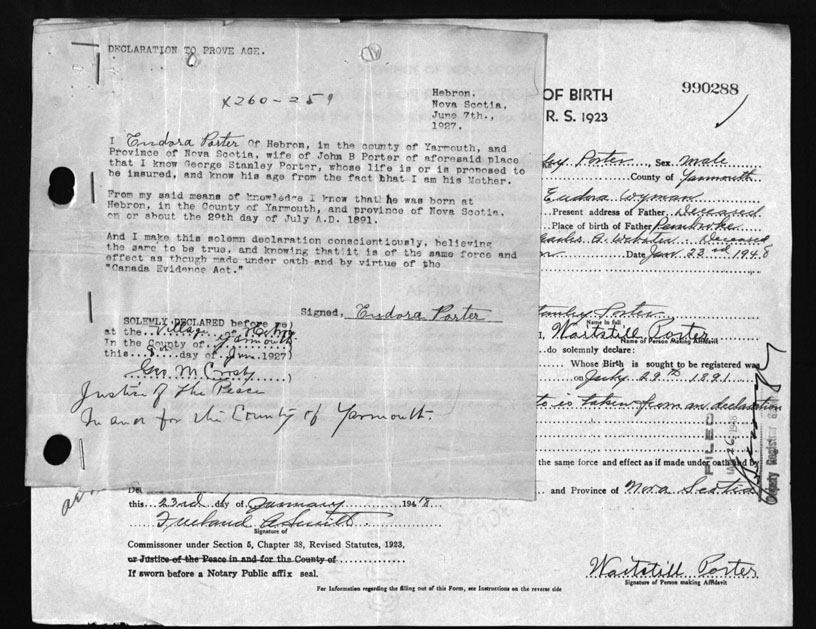 DECLARATION TO PROVE AGE.
X260-259
Hebron,
Nova Scotia,
June 7th.,
1927.
I Eudora Porter Of Hebron, in the county of Yarmouth, and
Province of Nova Scotia, wife of John B Porter of aforesaid place
that I know George Stanley Porter, whose life is or is proposed to
be insured, and know his age from the fact that I am his Mother.
From my said means of knowledge I know that he was born at
Hebron, in the County of Yarmouth, and province of Nova Scotia,
on or about the 29th day of July A.D. 1891.
And I make this solemn declaration conscientiously, believing
the same to be true, and knowing that it is of the same force and
effect as though made under oath and by virtue of the
"Canada Evidence Act."
Signed, Eudora Porter
SOLEMLY DECLARED before me)
at the Village of Hebron
In the County of Yarmouth
this 8 day of Jun 1927)
Geo. M Crosby )
Justice of the Peace
In and for the County of Yarmouth.
OF BIRTH
990288
R. S. 1923
Porter, Sex male
County of Yarmouth
Eudora Wyman
Present address of Father Deceased
Place of birth of Father Pembroke
Charles G. Webster Deceased
Date Jan 23rd 1948
Stanley Porter
Name in full
I, Waitstill Porter
Name of Person Making Affidavit
do solemnly declare:
Whose Birth is sought to be registered was
on July 29th 1891
is taken from an declaration
FILED
Deputy Registrar
the same force and effect as if made under oath and by
and Province of Nova Scotia
this 23rd day of January 1948
Freeland A Smith
Signature of
Commissioner under Section 5, Chapter 38, Revised Statutes, 1923,
or Justice of the Peace in and for the County of
If sworn before a Notary Public affix seal.
Waitstill Porter
Signature of Person making Affidavit
For Information regarding the filling out of this Form, see Instructions on the reverse side